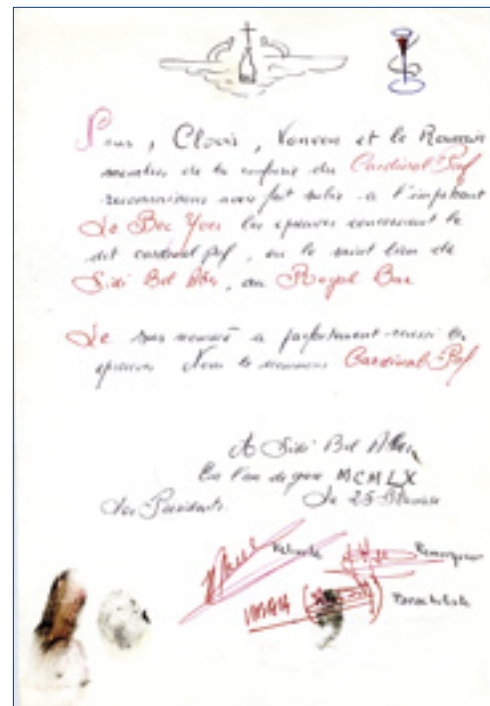 Nous, Clovis, Vonvon et le Roumain
membres de la confrérie du Cardinal-Paf
reconnaissons avoir fait subir à l'impétrant
Le Bec Yves les épreuves concernant le
dit cardinal paf, en le saint lieu de
Sidi Bel Abbès, au Royal Bar
Le sus nommé a parfaitement réussi les
épreuves Nous le nommons Cardinal-Paf
A Sidi Bel Abbès
En l'an de grâce MCMLX
Le 25
Les Présidents